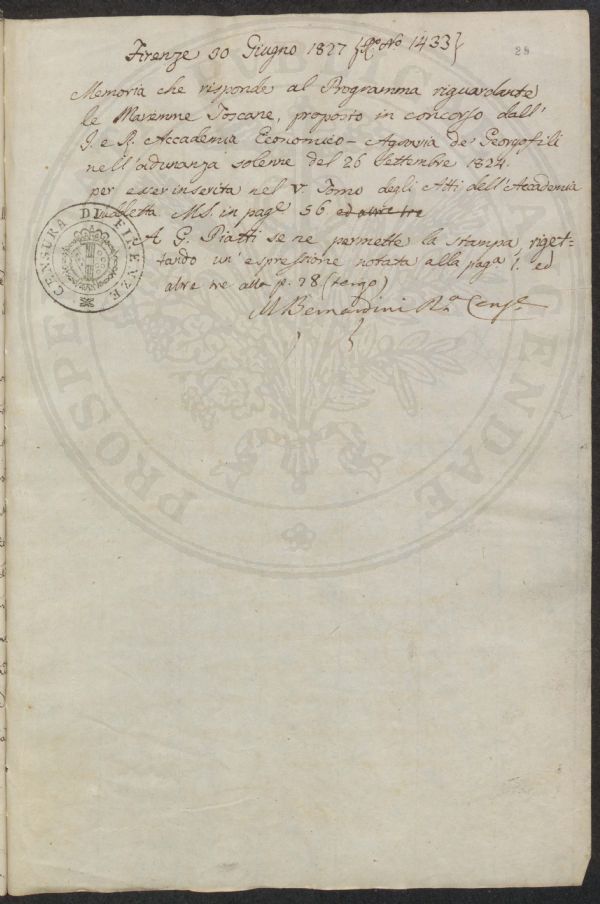 Firenze 30 Giugno 1827 {Rº Nº 1433}
28
Memoria che risponde al Programma riguardante
le Maremme Toscane, proposto in concorso dall'
I. e R. Accademia Economico-Agraria de Georgofili
nell'adunanza solenne del 26 Settembre 1824.
per esser inserita nel V. Tomo degli Atti dell'Accademia
suddetta MS. in page 56 ed altre tre
A G. Piatti se ne permette la stampa, riget-
tando un'espressione notata alla paga 1. ed
altre tre alla p. 28 (tergo)
M Bernardini Rº Cense
CENSURA DI FIRENZE
PROSPERITATI PUBLICAE AUGENDAE